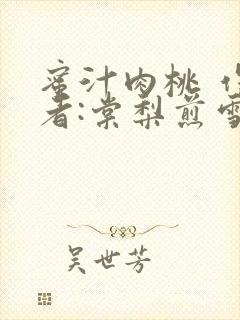 蜜汁肉桃 作
者:棠梨煎雪
吴世芳